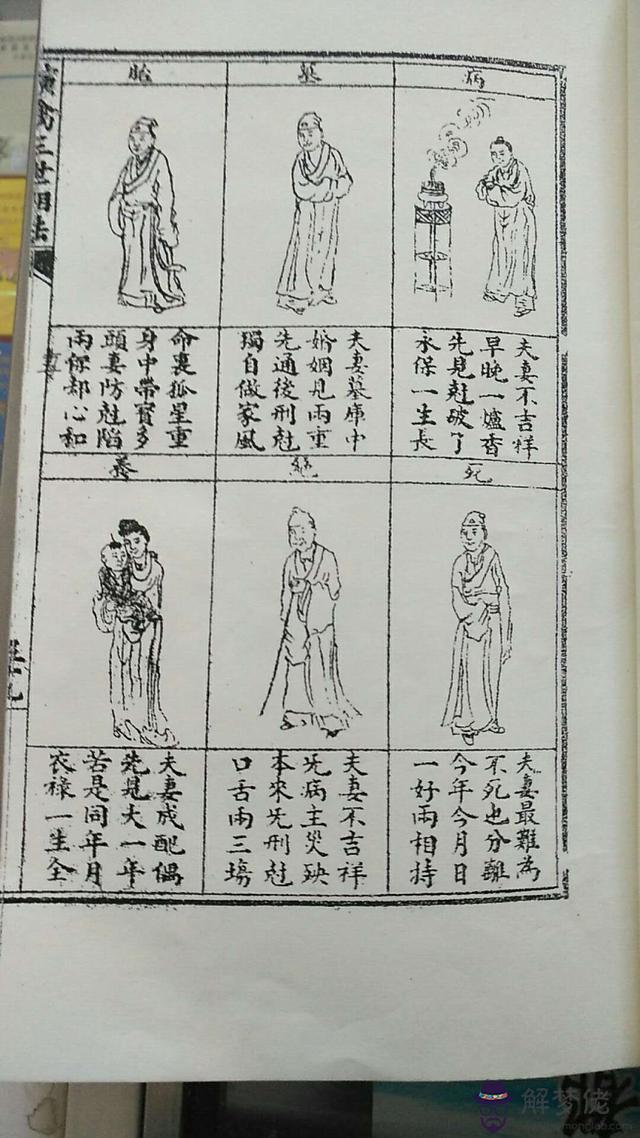 演禽三世相法
病
夫妻不吉祥
早晚一爐香
先見尅破了
永保一生長
墓
夫妻墓庫中
婚姻見兩重
先通後刑尅
獨自做家風
胎
命裏孤星重
身中帶寳多
頭妻防尅陷
兩保却心和
死
夫妻最難為
不死也分離
今年今月日
一好兩相持
絕
夫妻不吉祥
旡病主災殃
本來旡刑尅
口舌兩三塲
養
夫妻成配偶
先見夫一年
若是同年月
衣祿一生全
解梦佬